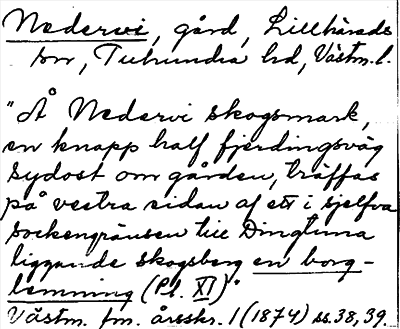 Nedervi, gård, Lillhärads
sn, Tuhundra hd, Västm. l.
"Å Nedervi skogsmark,
en knapp half fjerdingsväg
sydost om gården, träffas
på vestra sidan af ett i sjelfva
sockengränsen till Dingtuna
liggande skogsberg en borg-
lemning (Pl. XI)"
Västm. fm. årsskr. 1 (1874) ss. 38, 39.